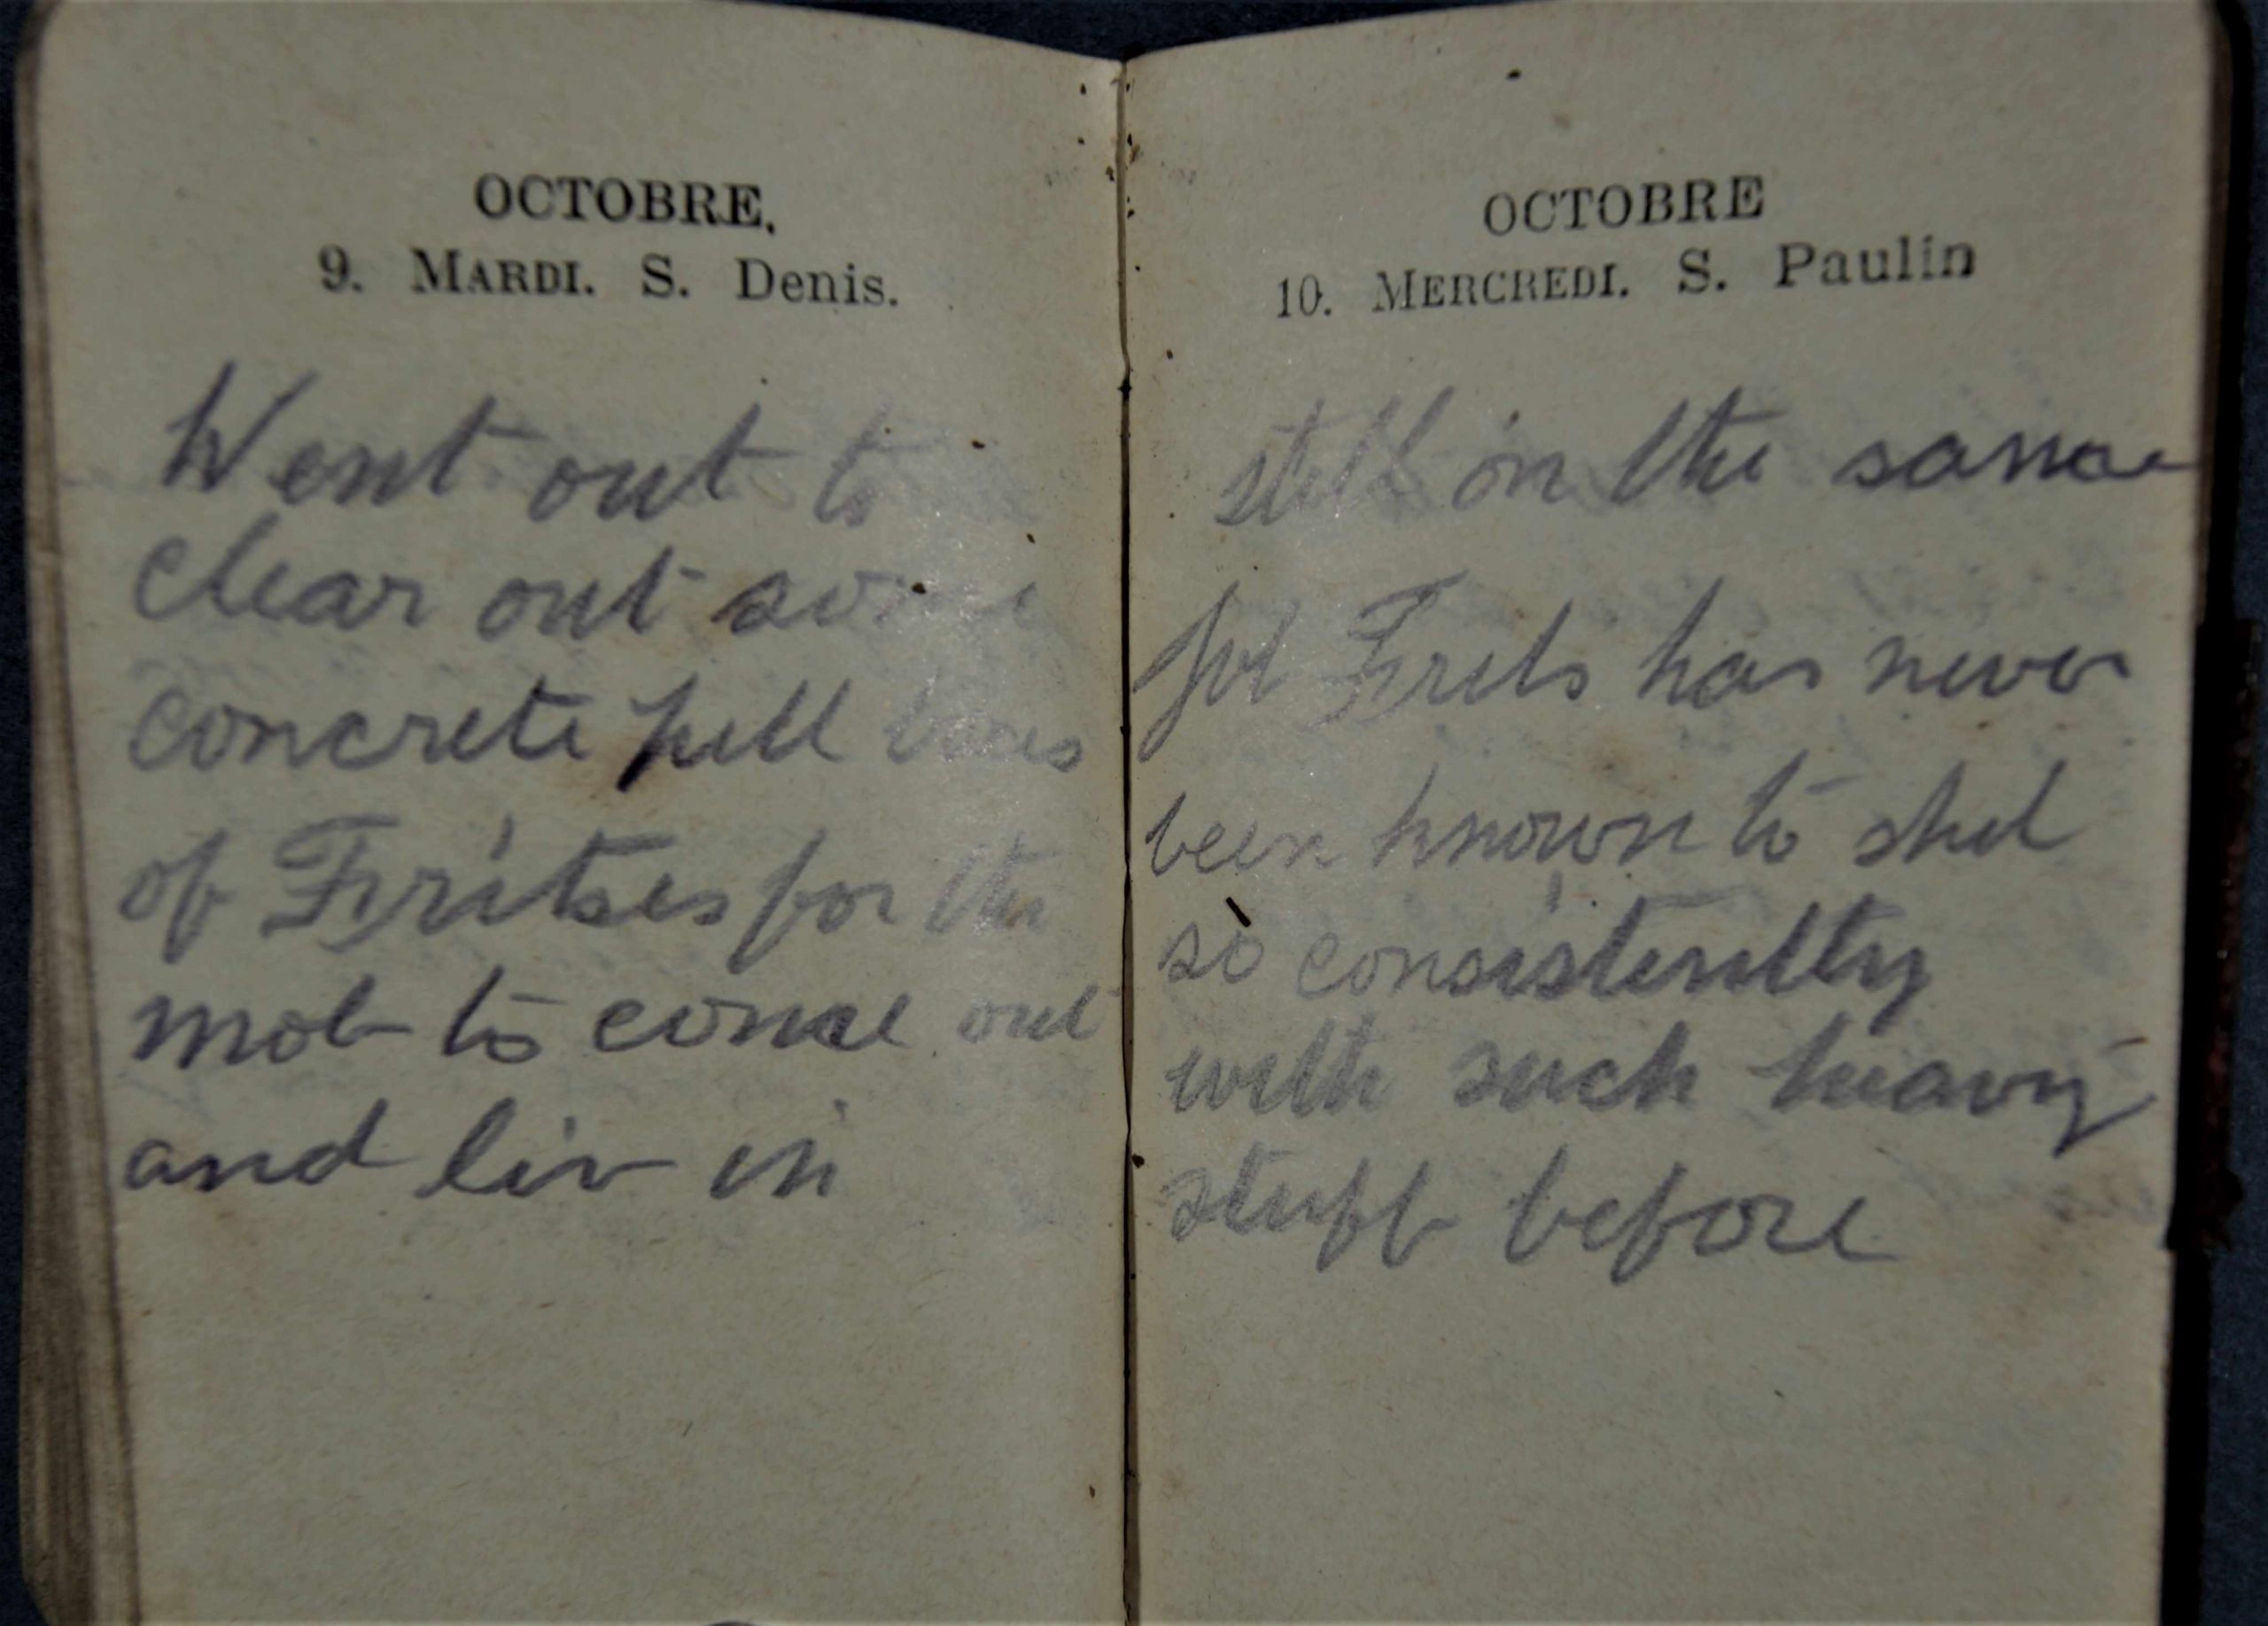 OCTOBRE.
9. MARDI. S. Denis.
Went out to
clear out some
concrete pill boxes
of Fritses for the
mob to come out
and liv in
OCTOBRE
10. MERCREDI. S. Paulin
still on the same
job Frits has never
been known to shel
so consistently
with such heavy
stuff before